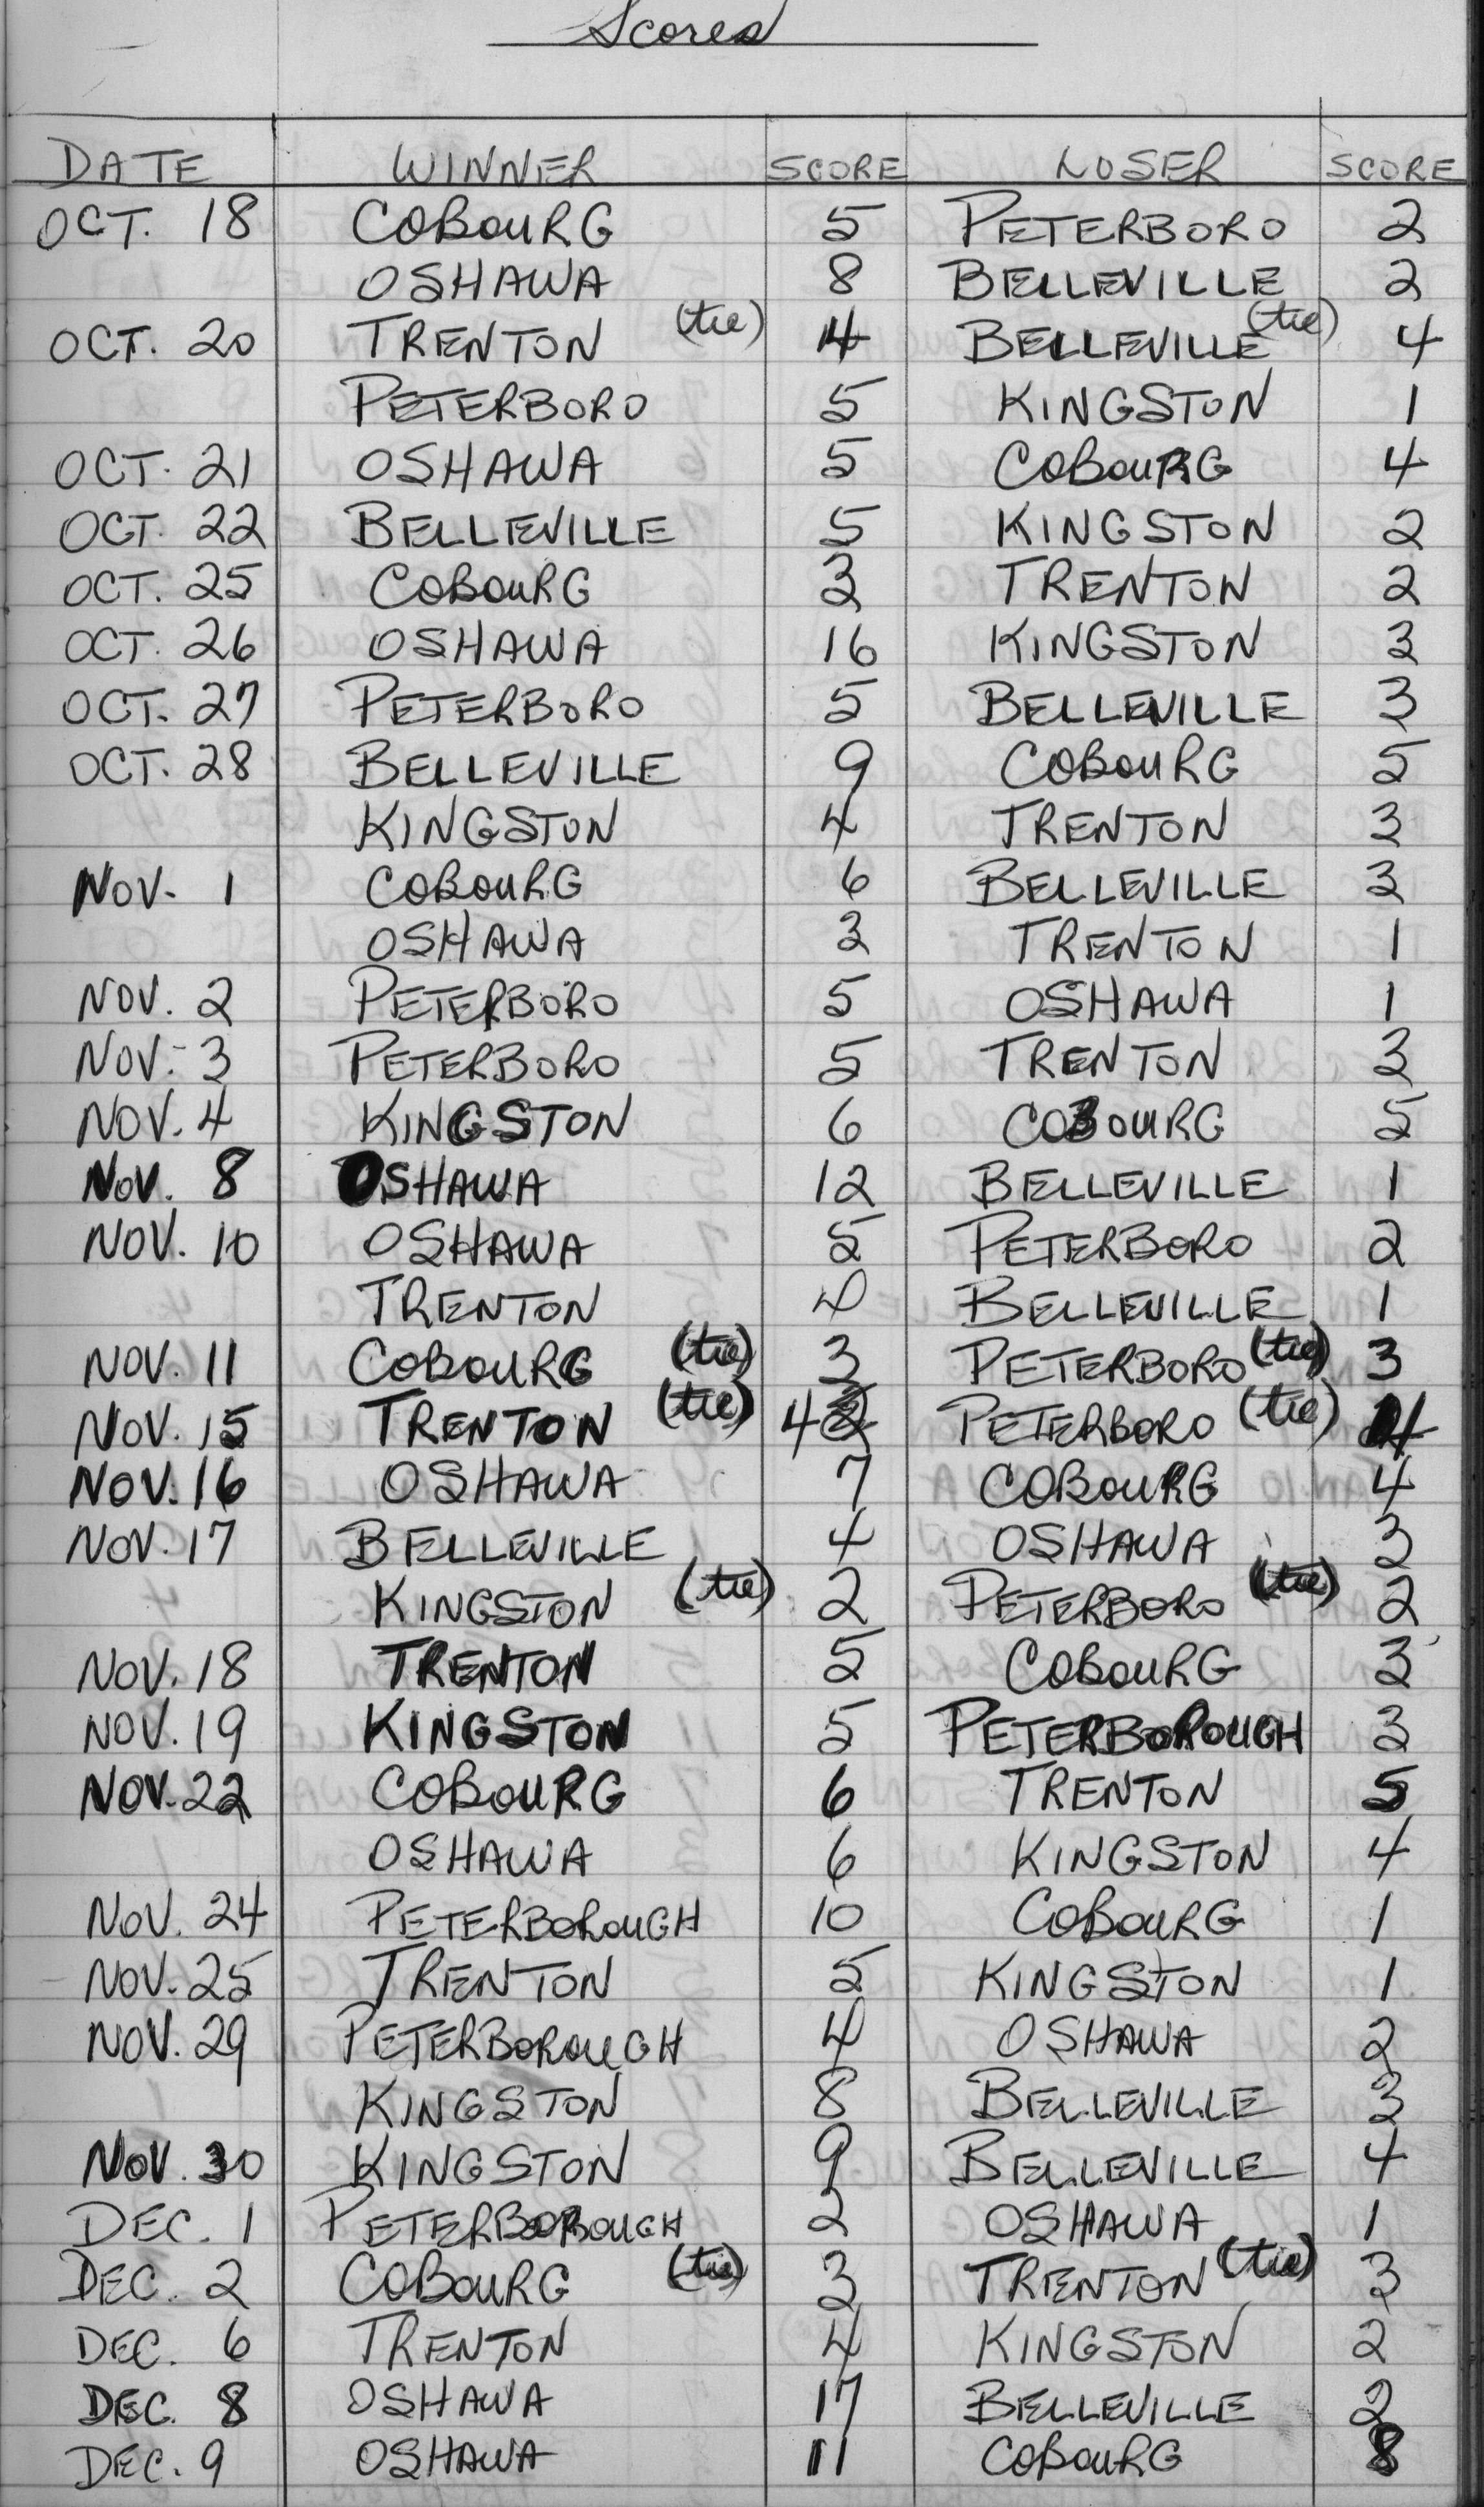 Scores
DATE WINNER SCORE LOSER SCORE
OCT. 18 COBOURG 5 PETERBORO 2
OSHAWA 8 BELLEVILLE 2
OCT. 20 TRENTON (tie) 4 BELLEVILLE (tie) 4
PETERBORO 5 KINGSTON 1
OCT. 21 OSHAWA 5 COBOURG 4
OCT. 22 BELLEVILLE 5 KINGSTON 2
OCT. 25 COBOURG 3 TRENTON 2
OCT. 26 OSHAWA 16 KINGSTON 3
OCT. 27 PETERBORO 5 BELLEVILLE 3
OCT. 28 BELLEVILLE 9 COBOURG 5
KINGSTON 4 TRENTON 3
NOV. 1 COBOURG 6 BELLEVILLE 3
OSHAWA 3 TRENTON 1
NOV. 2 PETERBORO 5 OSHAWA 1
NOV. 3 PETERBORO 5 TRENTON 3
NOV. 4 KINGSTON 6 COBOURG 5
NOV. 8 OSHAWA 12 BELLEVILLE 1
NOV. 10 OSHAWA 5 PETERBORO 2
TRENTON 4 BELLEVILLE 1
NOV. 11 COBOURG (tie) 3 PETERBORO (tie) 3
NOV. 15 TRENTON (tie) 4 PETERBORO (tie) 4
NOV. 16 OSHAWA 7 COBOURG 4
NOV. 17 BELLEVILLE 4 OSHAWA 3
KINGSTON (tie) 2 PETERBORO (tie) 2
NOV. 18 TRENTON 5 COBOURG 3
NOV. 19 KINGSTON 5 PETERBOROUGH 3
NOV. 22 COBOURG 6 TRENTON 5
OSHAWA 6 KINGSTON 4
NOV. 24 PETERBOROUGH 10 COBOURG 1
NOV. 25 TRENTON 5 KINGSTON 1
NOV. 29 PETERBOROUGH 4 OSHAWA 2
KINGSTON 8 BELLEVILLE 3
NOV. 30 KINGSTON 9 BELLEVILLE 4
DEC. 1 PETERBOROUGH 2 OSHAWA 1
DEC. 2 COBOURG (tie) 3 TRENTON (tie) 3
DEC. 6 TRENTON 4 KINGSTON 2
DEC. 8 OSHAWA 17 BELLEVILLE 2
DEC. 9 OSHAWA 11 COBOURG 8